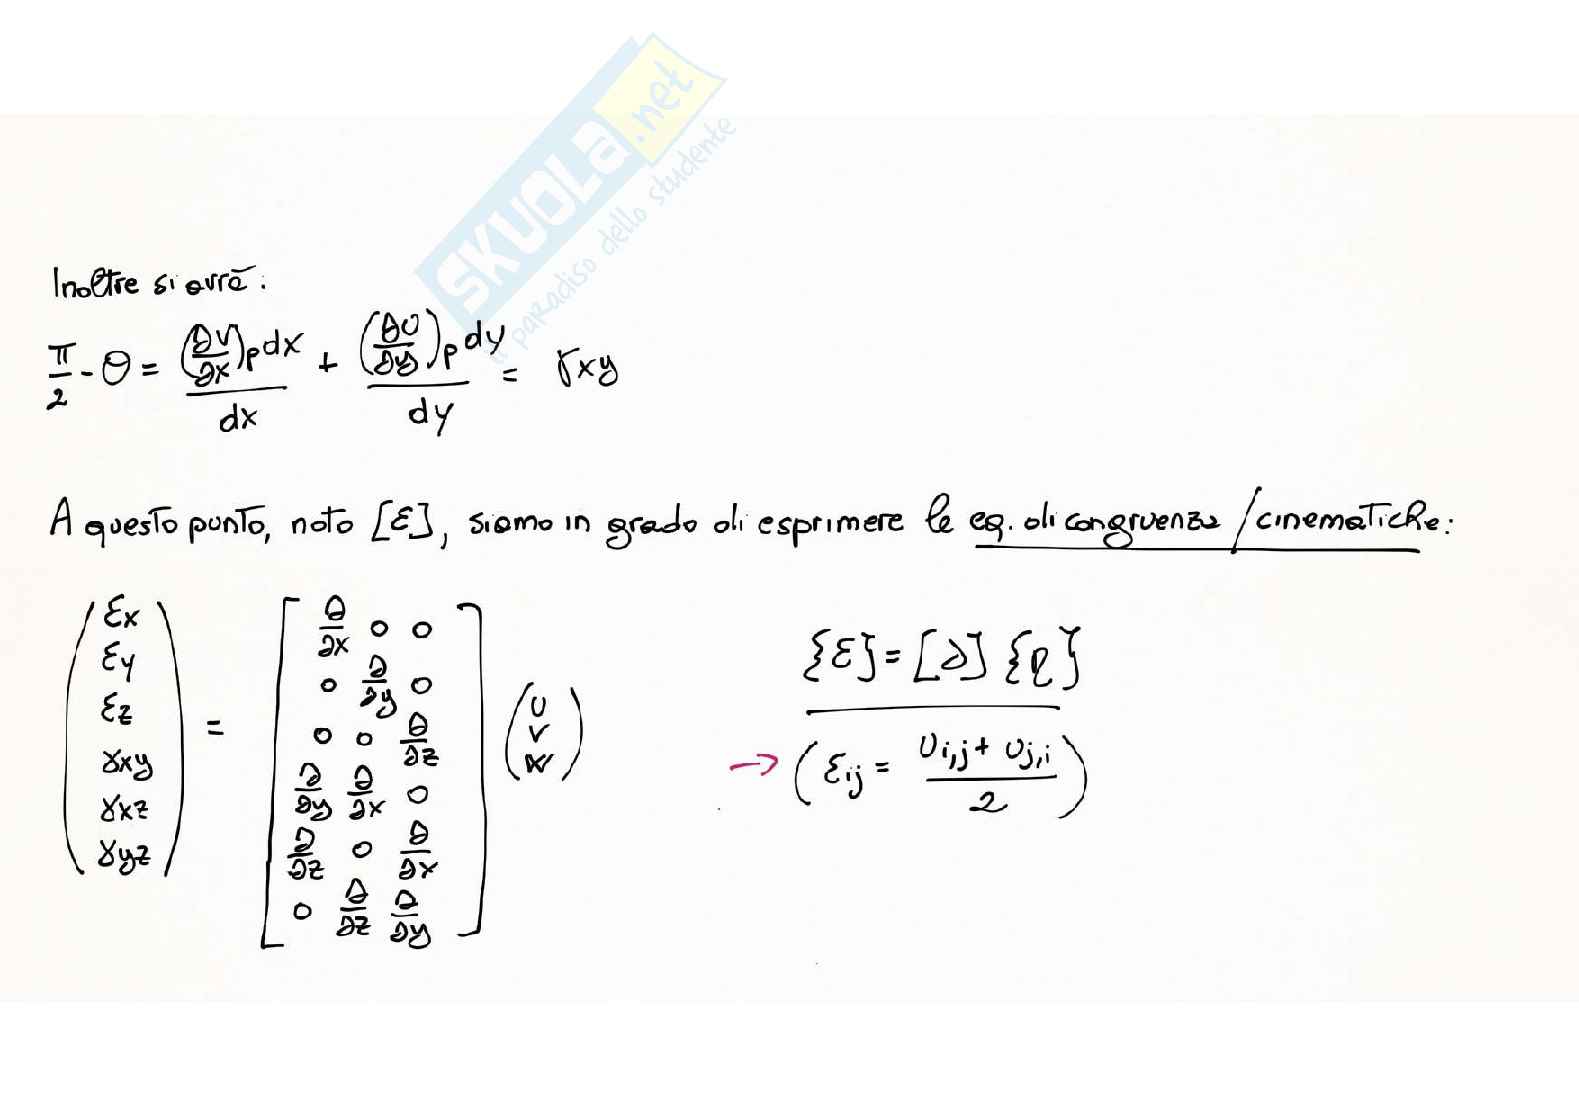 SKUOLA.net
il paradiso dello studente
Inoltre si avrà:
π/2 - θ = (∂v/∂x)p dx / dx + (∂u/∂y)p dy / dy = γxy
A questo punto, noto [ε], siamo in grado di esprimere le eq. di congruenza / cinematiche:
(εx εy εz γxy γxz γyz) = [∂/∂x 0 0; 0 ∂/∂y 0; 0 0 ∂/∂z; ∂/∂y ∂/∂x 0; ∂/∂z 0 ∂/∂x; 0 ∂/∂z ∂/∂y] (u v w)
{ε} = [∂] {η}
→ (εij = (ui,j + uj,i) / 2)